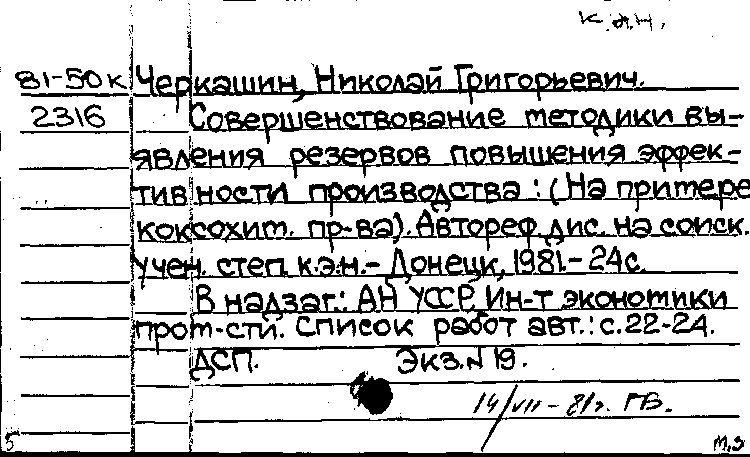 к.э.н.
81-50к Черкашин, Николай Григорьевич.
2316 Совершенствование методики вы-
явления резервов повышения эффек-
тивности производства: (На примере
коксохим. пр-ва). Автореф. дис. на соиск.
учен. степ. к.э.н. - Донецк, 1981. - 24с.
В надзаг.: АН УССР, Ин-т экономики
пром-сти. Список работ авт.: с. 22-24.
ДСП. Экз. N 19.
14/VII - 81г. ГБ.
5 м,з